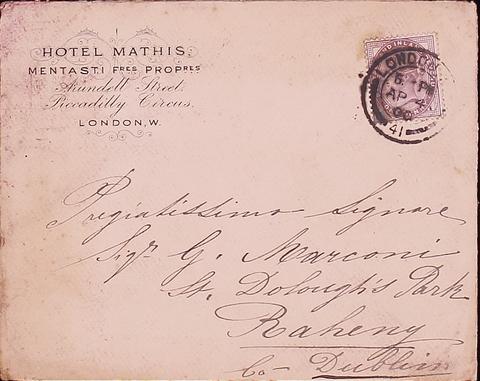 HOTEL MATHIS.
MENTASTI FRES PROPRES
Arundell Street,
Piccadilly Circus.
LONDON, W.
LONDON
5 PM
AP 4
00
41
Pregiatissimo Signore
Sigr G. Marconi
St. Dolough's Park
Raheny
Co- Dublin